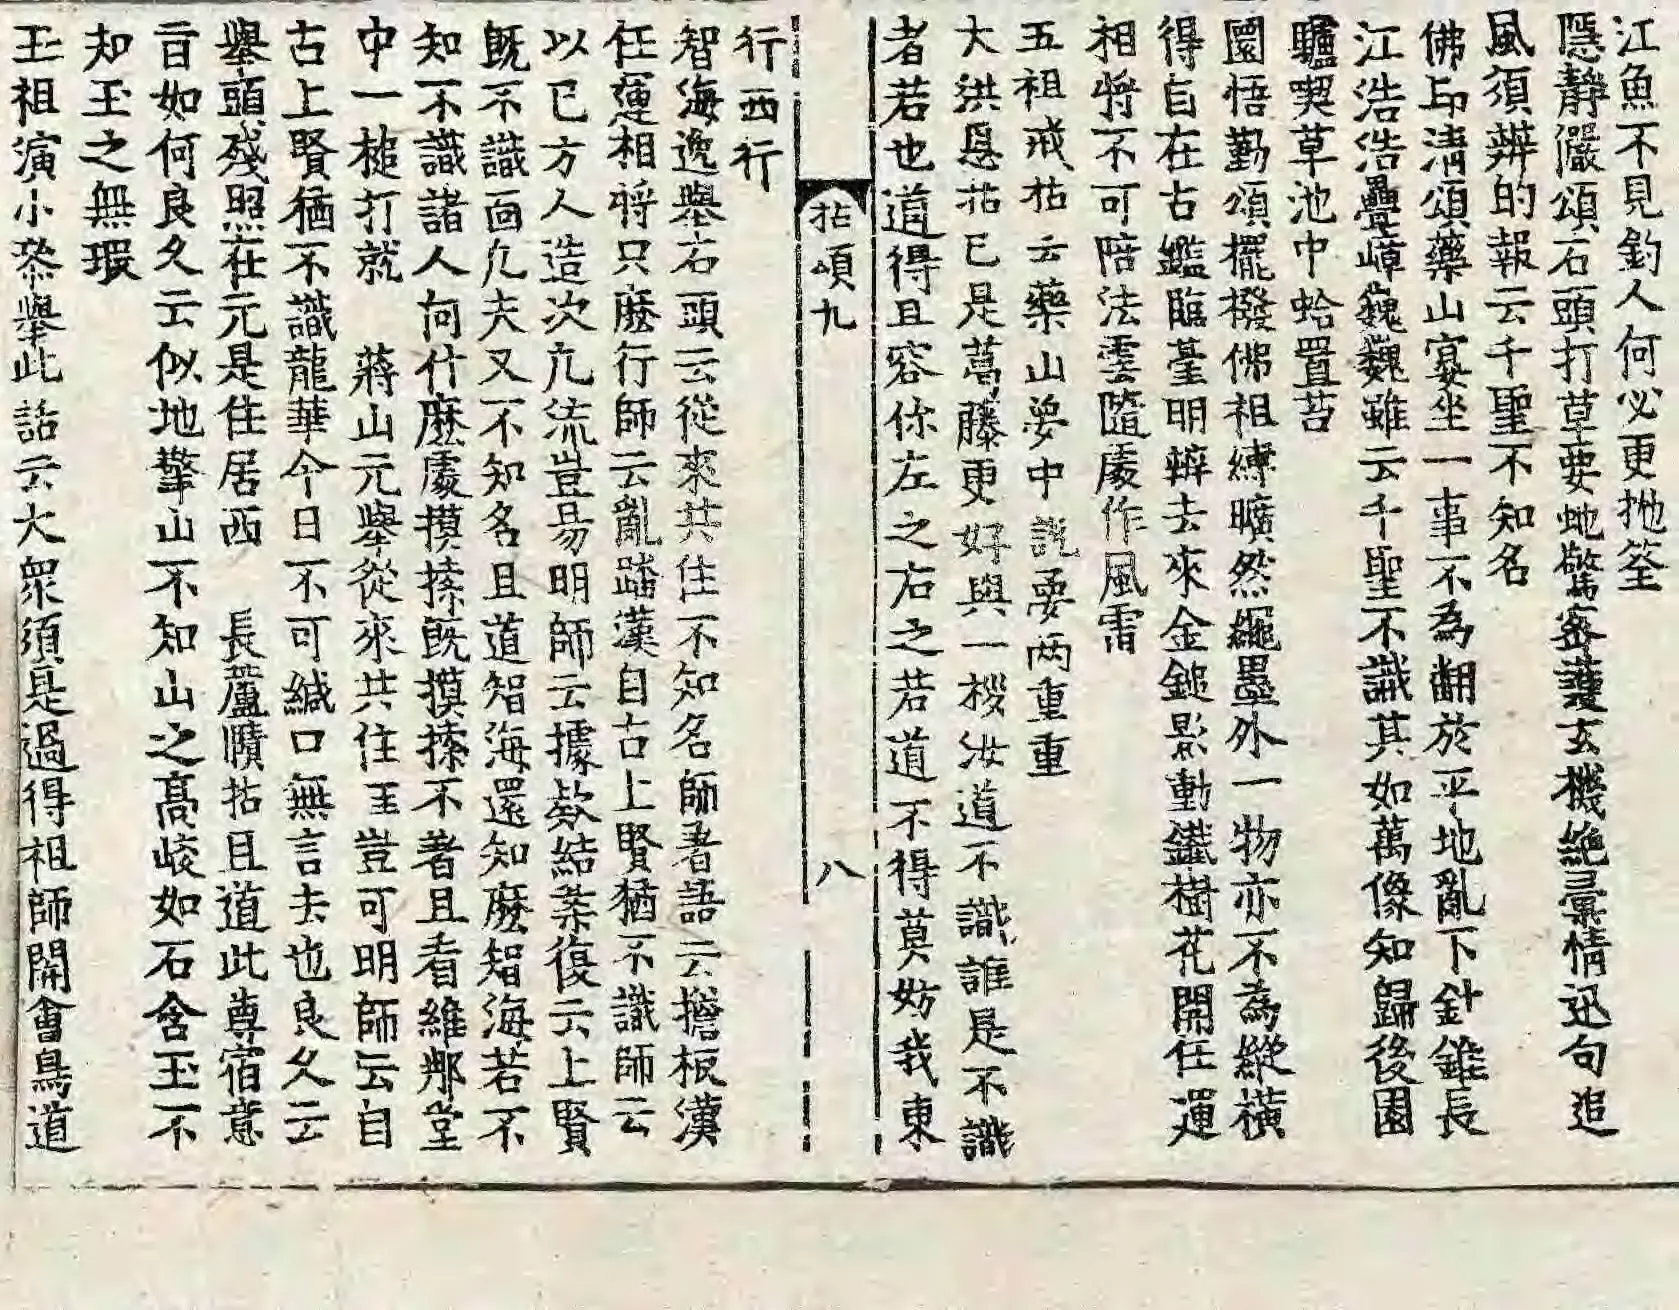 江魚不見釣人何必更抛筌
隱靜儼頌石頭打草要虵驚密護玄機絶彚情迅句追
風須辨的報云千聖不知名
佛印淸頌藥山宴坐一事不爲翻於平地亂下針錐長
江浩浩疊嶂巍巍雖云千聖不識其如萬像知歸後園
驢喫草池中蛤置苔
圜悟勤頌擺撥佛祖縛曠然繩墨外一物亦不爲縱橫
得自在古鑑臨臺明辨去來金鎚影動鐵樹花開任運
相將不可陪法雲隨處作風雷
五祖戒拈云藥山夢中說夢兩重重
大洪恩拈已是葛藤更好與一椤汝道不識誰是不識
者若也道得且容你左之右之若道不得莫妨我東
拈頌九　八
行西行
智海逸擧石頭云從來共住不知名師著語云擔板漢
任運相將只麽行師云亂蹋漢自古上賢猶不識師云
以己方人造次凡流豈易明師云據欵結案復云上賢
旣不識面凡夫又不知名且道智海還知麽智海若不
知不識諸人向什麽處摸搽旣摸搽不著且看維那堂
中一槌打就　蔣山元擧從來共住至豈可明師云自
古上賢猶不識龍華今日不可緘口無言去也良久云
擧頭殘照在元是住居西　長蘆賾拈且道此尊宿意
旨如何良久云似地擎山不知山之高峻如石含玉不
知玉之無瑕
五祖演小叅擧此話云大衆須是過得祖師開會鳥道